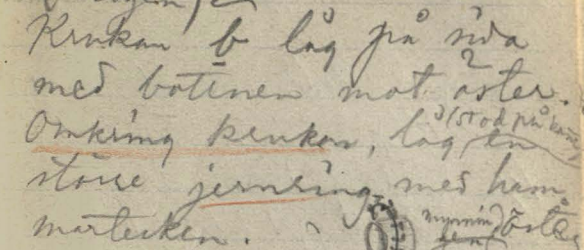 Krukan b låg på sida
med bottnen mot öster.
Omkring krukan, låg en
(stod på
större jernring med ham
martecken.